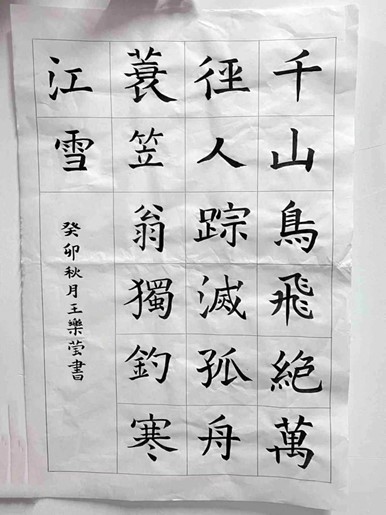 千山鳥飛絕萬
徑人踪滅孤舟
蓑笠翁獨釣寒
江雪
癸卯秋月王樂莹書